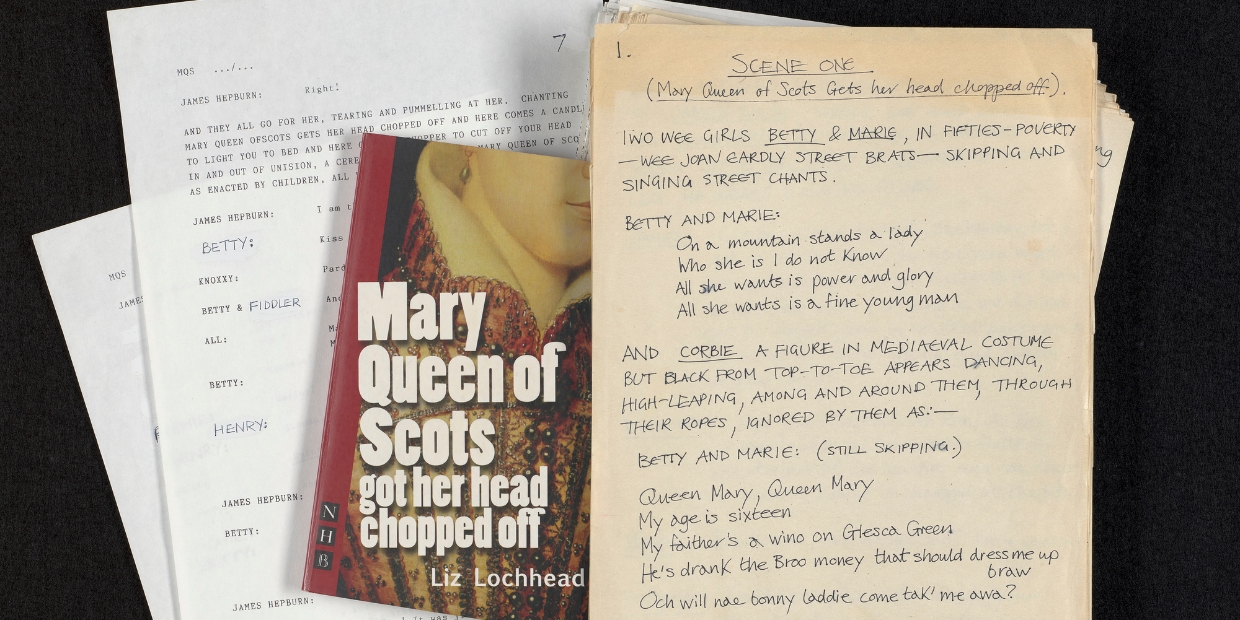 7
MQS .../...
JAMES HEPBURN: Right!
AND THEY ALL GO FOR HER, TEARING AND PUMMELLING AT HER, CHANTING
MARY QUEEN OFSCOTS GETS HER HEAD CHOPPED OFF AND HERE COMES A CANDL
TO LIGHT YOU TO BED AND HERE TO CUT OFF YOUR HEAD
IN AND OUT OF UNISION, A MARY QUEEN OF SCO
AS ENACTED BY CHILDREN, ALL
JAMES HEPBURN: I am
BETTY: Kiss
KNOXXY:
BETTY & FIDDLER
ALL:
BETTY:
HENRY:
JAMES HEPBURN:
BETTY:
JAMES HEPBURN:
MQS
JAMES
Mary
Queen of
Scots
got her head
chopped off
Liz Lochhead
N
H
B
1.
SCENE ONE
(Mary Queen of Scots Gets her head chopped off).
TWO WEE GIRLS BETTY & MARIE, IN FIFTIES-POVERTY
—WEE JOAN EARDLY STREET BRATS— SKIPPING AND
SINGING STREET CHANTS.
BETTY AND MARIE:
On a mountain stands a lady
Who she is I do not know
All she wants is power and glory
All she wants is a fine young man
AND CORBIE A FIGURE IN MEDIAEVAL COSTUME
BUT BLACK FROM TOP-TO-TOE APPEARS DANCING,
HIGH-LEAPING, AMONG AND AROUND THEM, THROUGH
THEIR ROPES, IGNORED BY THEM AS:—
BETTY AND MARIE: (STILL SKIPPING.)
Queen Mary, Queen Mary
My age is sixteen
My faither's a wino on Glesca Green
He's drank the Broo money that should dress me up
braw
Och will nae bonny laddie come tak' me awa?